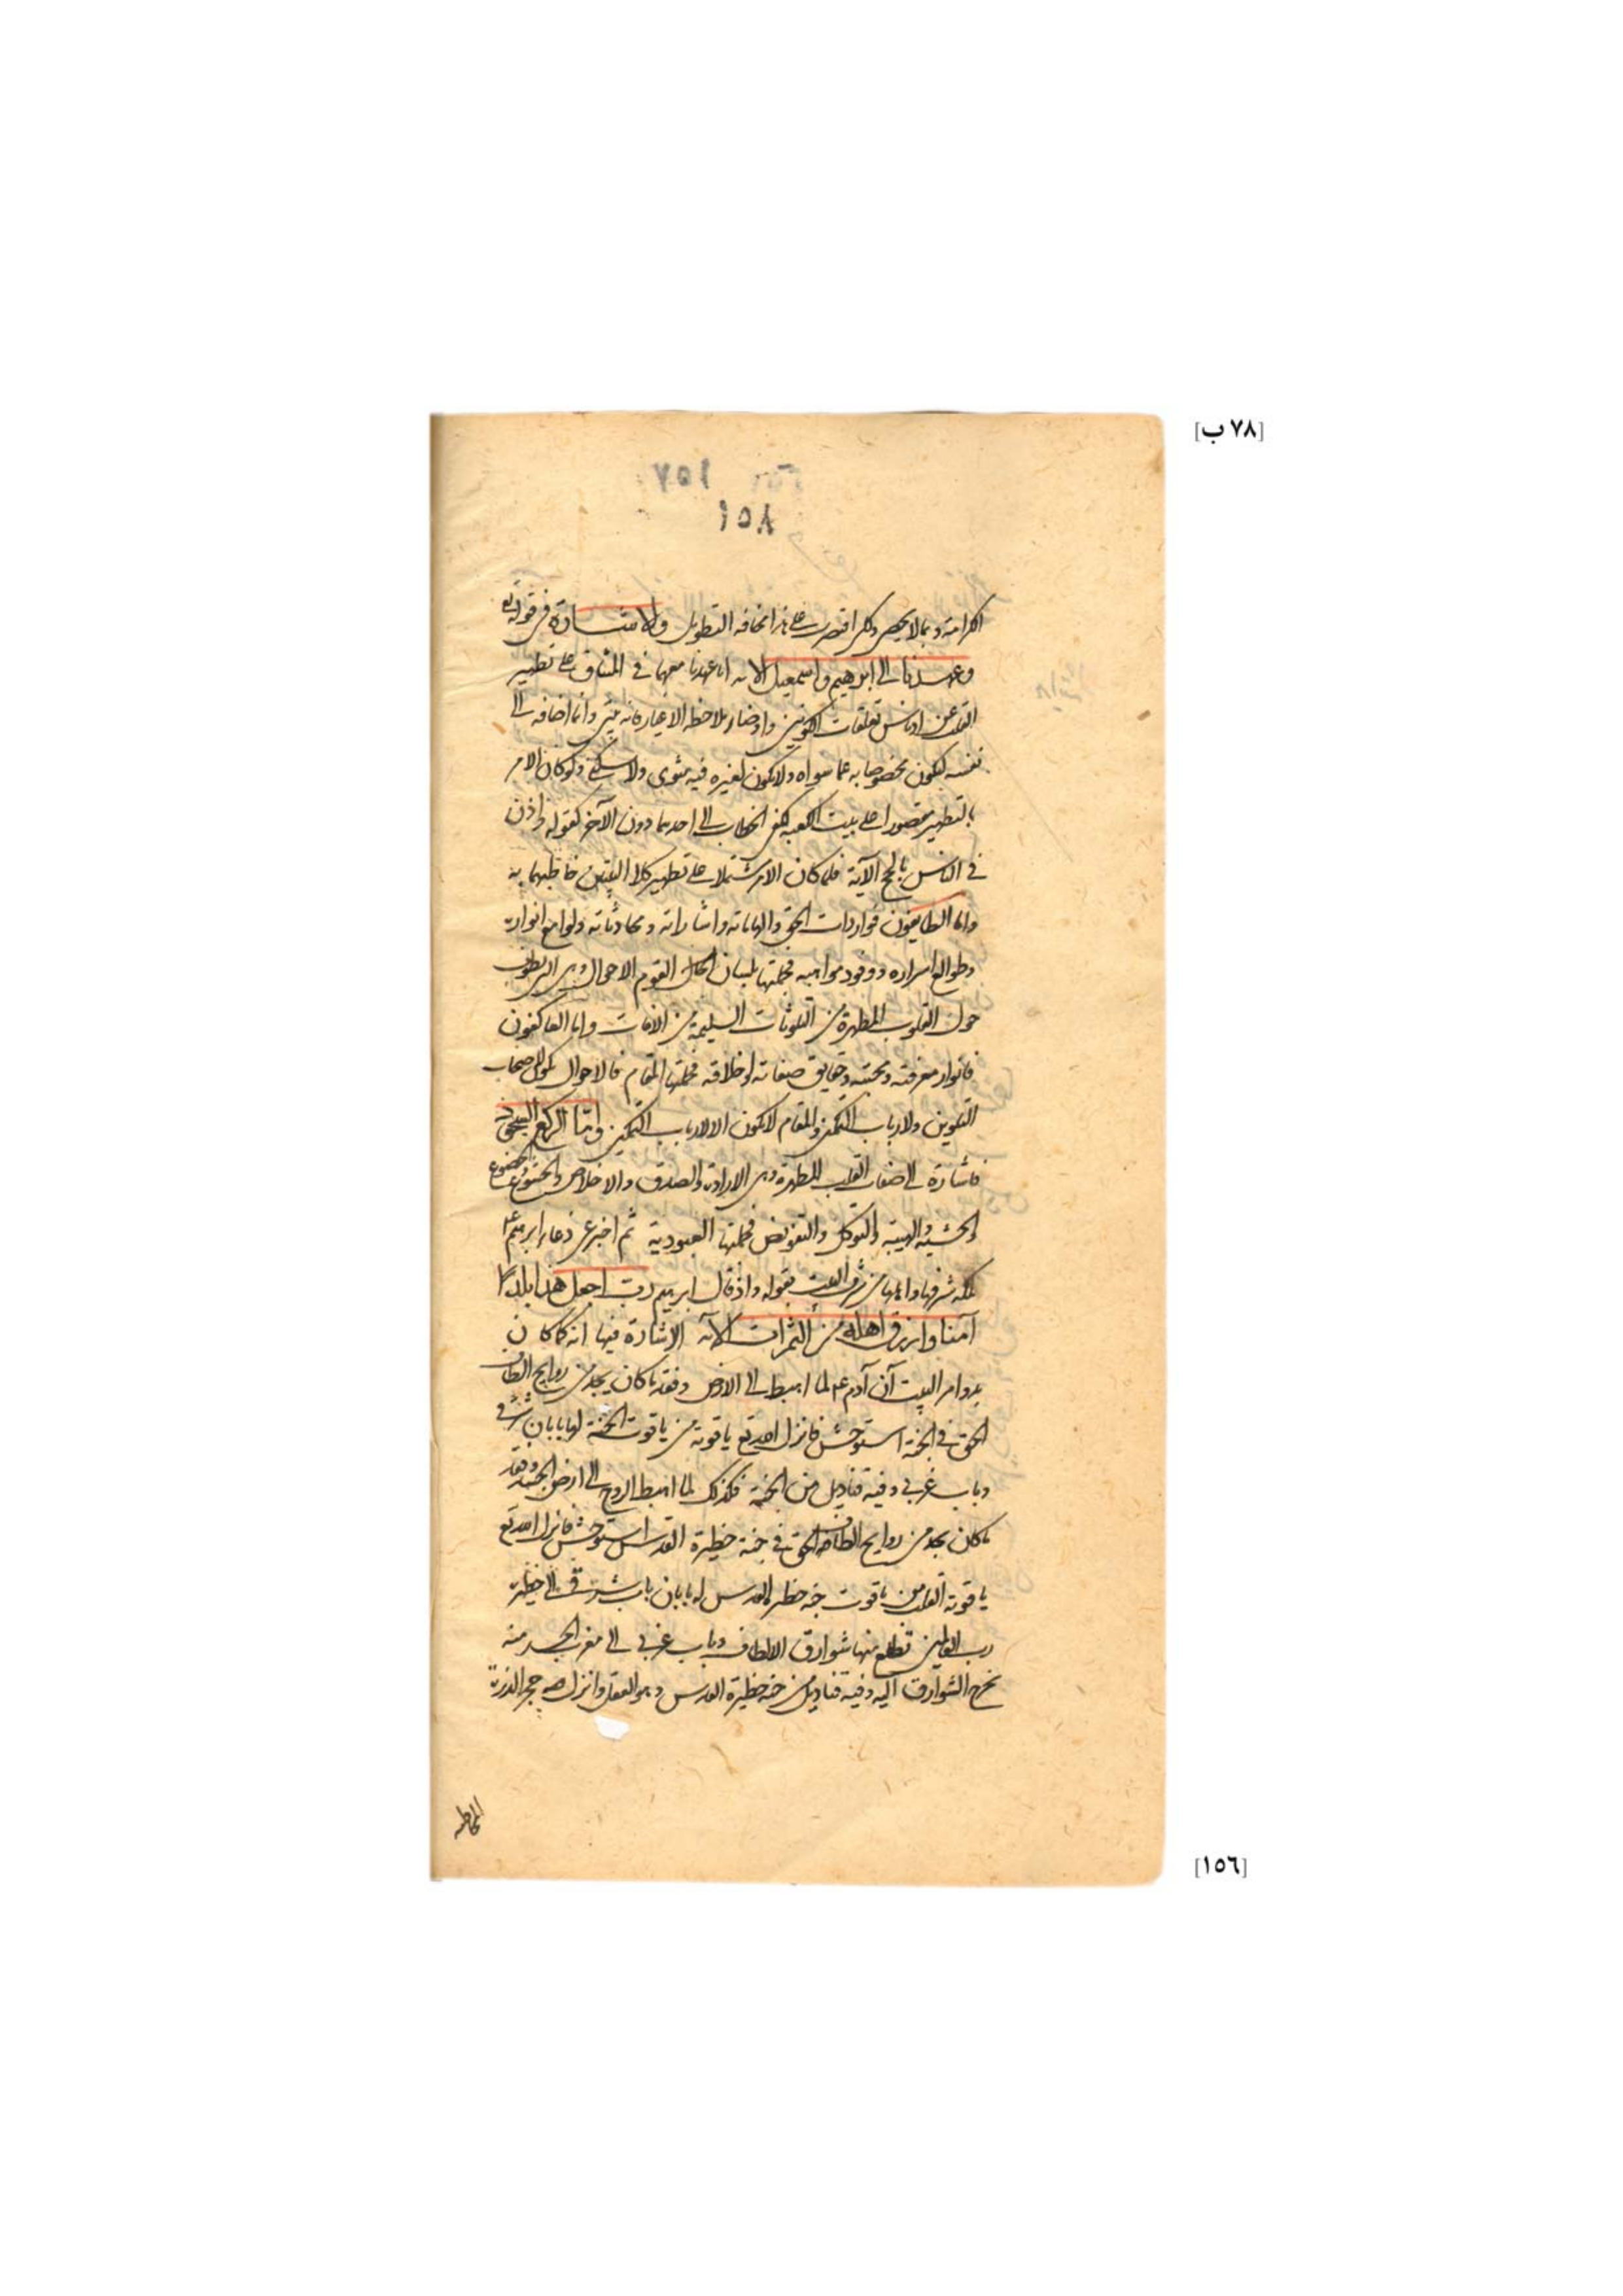 [٧٨ ب]
١٥٧
١٥٨
الكرامة وبما لا يحصى ولكن اقتصرت على هذا مخافة التطويل والاشارة في قوله تع
وعهدنا الى ابرهيم واسمعيل الاية انا عهدنا معهما في الميثاق على تطهير
القلب عن ادناس تعلقات الكونين واوضار ملاحظة الاغيار فانه بيتي وانما اضافه الى
نفسه ليكون مخصوصا به عما سواه ولا يكون لغيره فيه مثوى ولا سكنى ولو كان الامر
بالتطهير مقصورا على بيت الكعبة لكفى الخطاب الى احدهما دون الآخر كقوله واذن
في الناس بالحج الآية فلما كان الامر مشتملا على تطهير كلا البيتين خاطبهما به
واما الطايفون فواردات الحق والهاماته واشاراته ومحادثاته ولوامع انواره
وطوالع اسراره ووفود مواهبه فجملتها بلسان القوم الاحوال وهي التي تطوف
حول القلوب المطهرة من التلوثات السليمة من الافات واما العاكفون
فانوار معرفته ومحبته وحقايق صفاته واخلاقه فجملتها المقام فالاحوال تكون لاصحاب
التلوين ولارباب التمكين والمقام لا يكون الا لارباب التمكين واما الركع السجود
فاشارة الى صفات القلب المطهرة وهي الارادة والصدق والاخلاص والخشوع والخضوع
والخشية والهيبة والتوكل والتفويض فجملتها العبودية ثم اخبر عن دعاء ابرهيم ع
لمكة شرفها واهلها من شرف البيت بقوله واذ قال ابرهيم رب اجعل هذا بلدا
آمنا وارزق اهله من الثمرات الآية الاشارة فيها انه كما كان
بدو امر البيت ان آدم ع لما اهبط الى الارض وفقد ما كان يجد من روايح الطاف
الحق في الجنة استوحش فانزل الله تع ياقوتة من ياقوت الجنة لها بابان شرقي
وباب غربي وفيه قناديل من الجنة فكذلك لما اهبط الروح الى ارض الجسد وفقد
ما كان يجد من روايح الطاف الحق في جنة حظيرة القدس استوحش فانزل الله تع
ياقوتة القلب من ياقوت جنة حظيرة القدس له بابان باب شرقي الى حظيرة
رب العالمين تطلع منها شوارق الالطاف وباب غربي الى مغرب الجسد منه
تخرج الشوارق اليه وفيه قناديل من جنة حظيرة القدس وهو العقل وانزل حجر الذرة
[١٥٦]